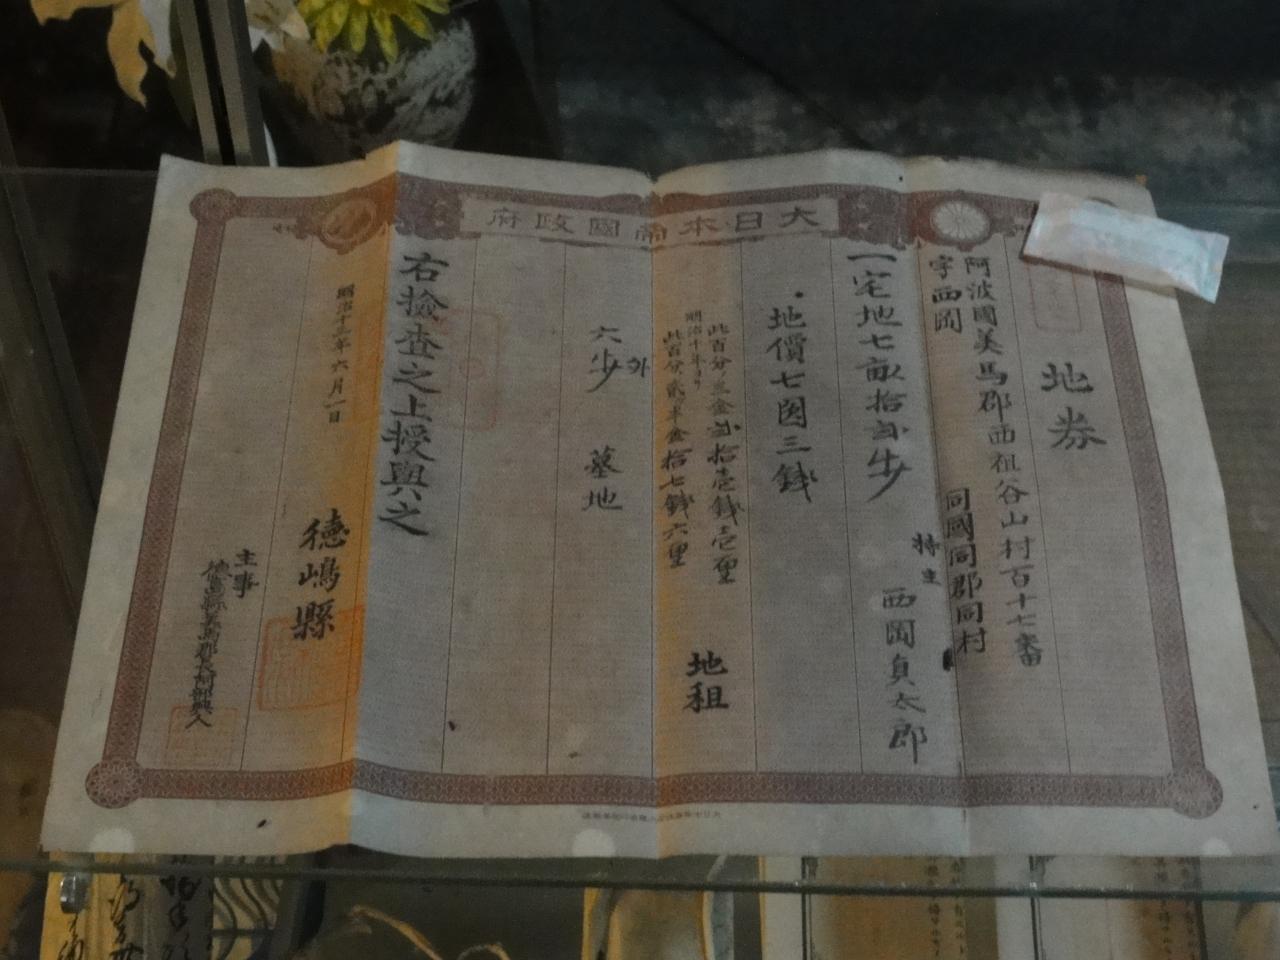 大日本帝國政府
地券
阿波國美馬郡西祖谷山村百十七番
字西岡
同國同郡同村
持主
西岡貞太郎
一宅地七畝拾弐歩
地價七円三錢
此百分ノ三金弐拾壱錢壱厘
明治十年ヨリ
此百分ノ貳ヶ半金拾七錢六厘
地租
外
六歩 墓地
右撿査之上授與之
明治十三年六月一日
徳嶋縣
主事
徳島縣美馬郡長阿部興人